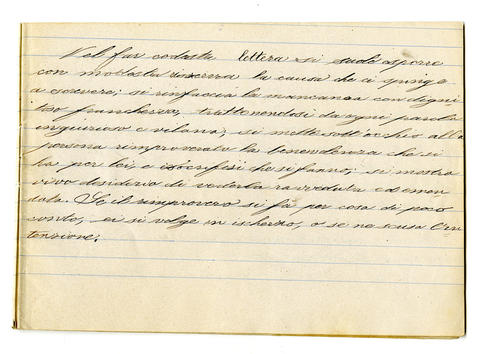 Nel far codesta lettera si suole esporre
con modesta riserva la causa che ci spinge
a scrivere; si rinfaccia la mancanza con digni
tosa franchezza, trattenendosi da ogni parola
ingiurioso e vilana; si mette sott'occhio alla
persona rimproverata la benevolenza che si
ha per lei, e i sacrifisi che si fanno; si mostra
vivo desiderio di vederla ravveduta ed emen
data. Se il rimprovero si fà per cosa di poco
conto, ci si volge in ischerzo, o se ne scusa l'in
tenzione.